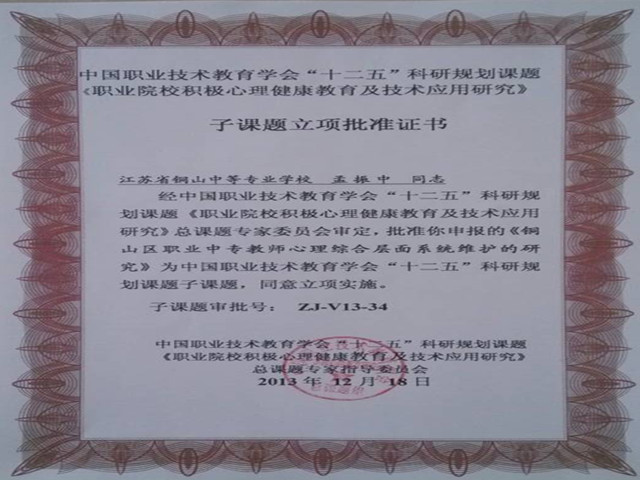 中国职业技术教育学会“十二五”科研规划课题
《职业院校积极心理健康教育及技术应用研究》
子课题立项批准证书
江苏省铜山中等专业学校 孟振中 同志
经中国职业技术教育学会“十二五”科研规
划课题《职业院校积极心理健康教育及技术应用
研究》总课题专家委员会审定，批准你申报的《铜
山区职业中专教师心理综合层面系统维护的研
究》为中国职业技术教育学会“十二五”科研规
划课题子课题，同意立项实施。
子课题审批号： ZJ-V13-34
中国职业技术教育学会“十二五”科研规划课题
《职业院校积极心理健康教育及技术应用研究》
总课题专家指导委员会
2013 年 12 月 18 日